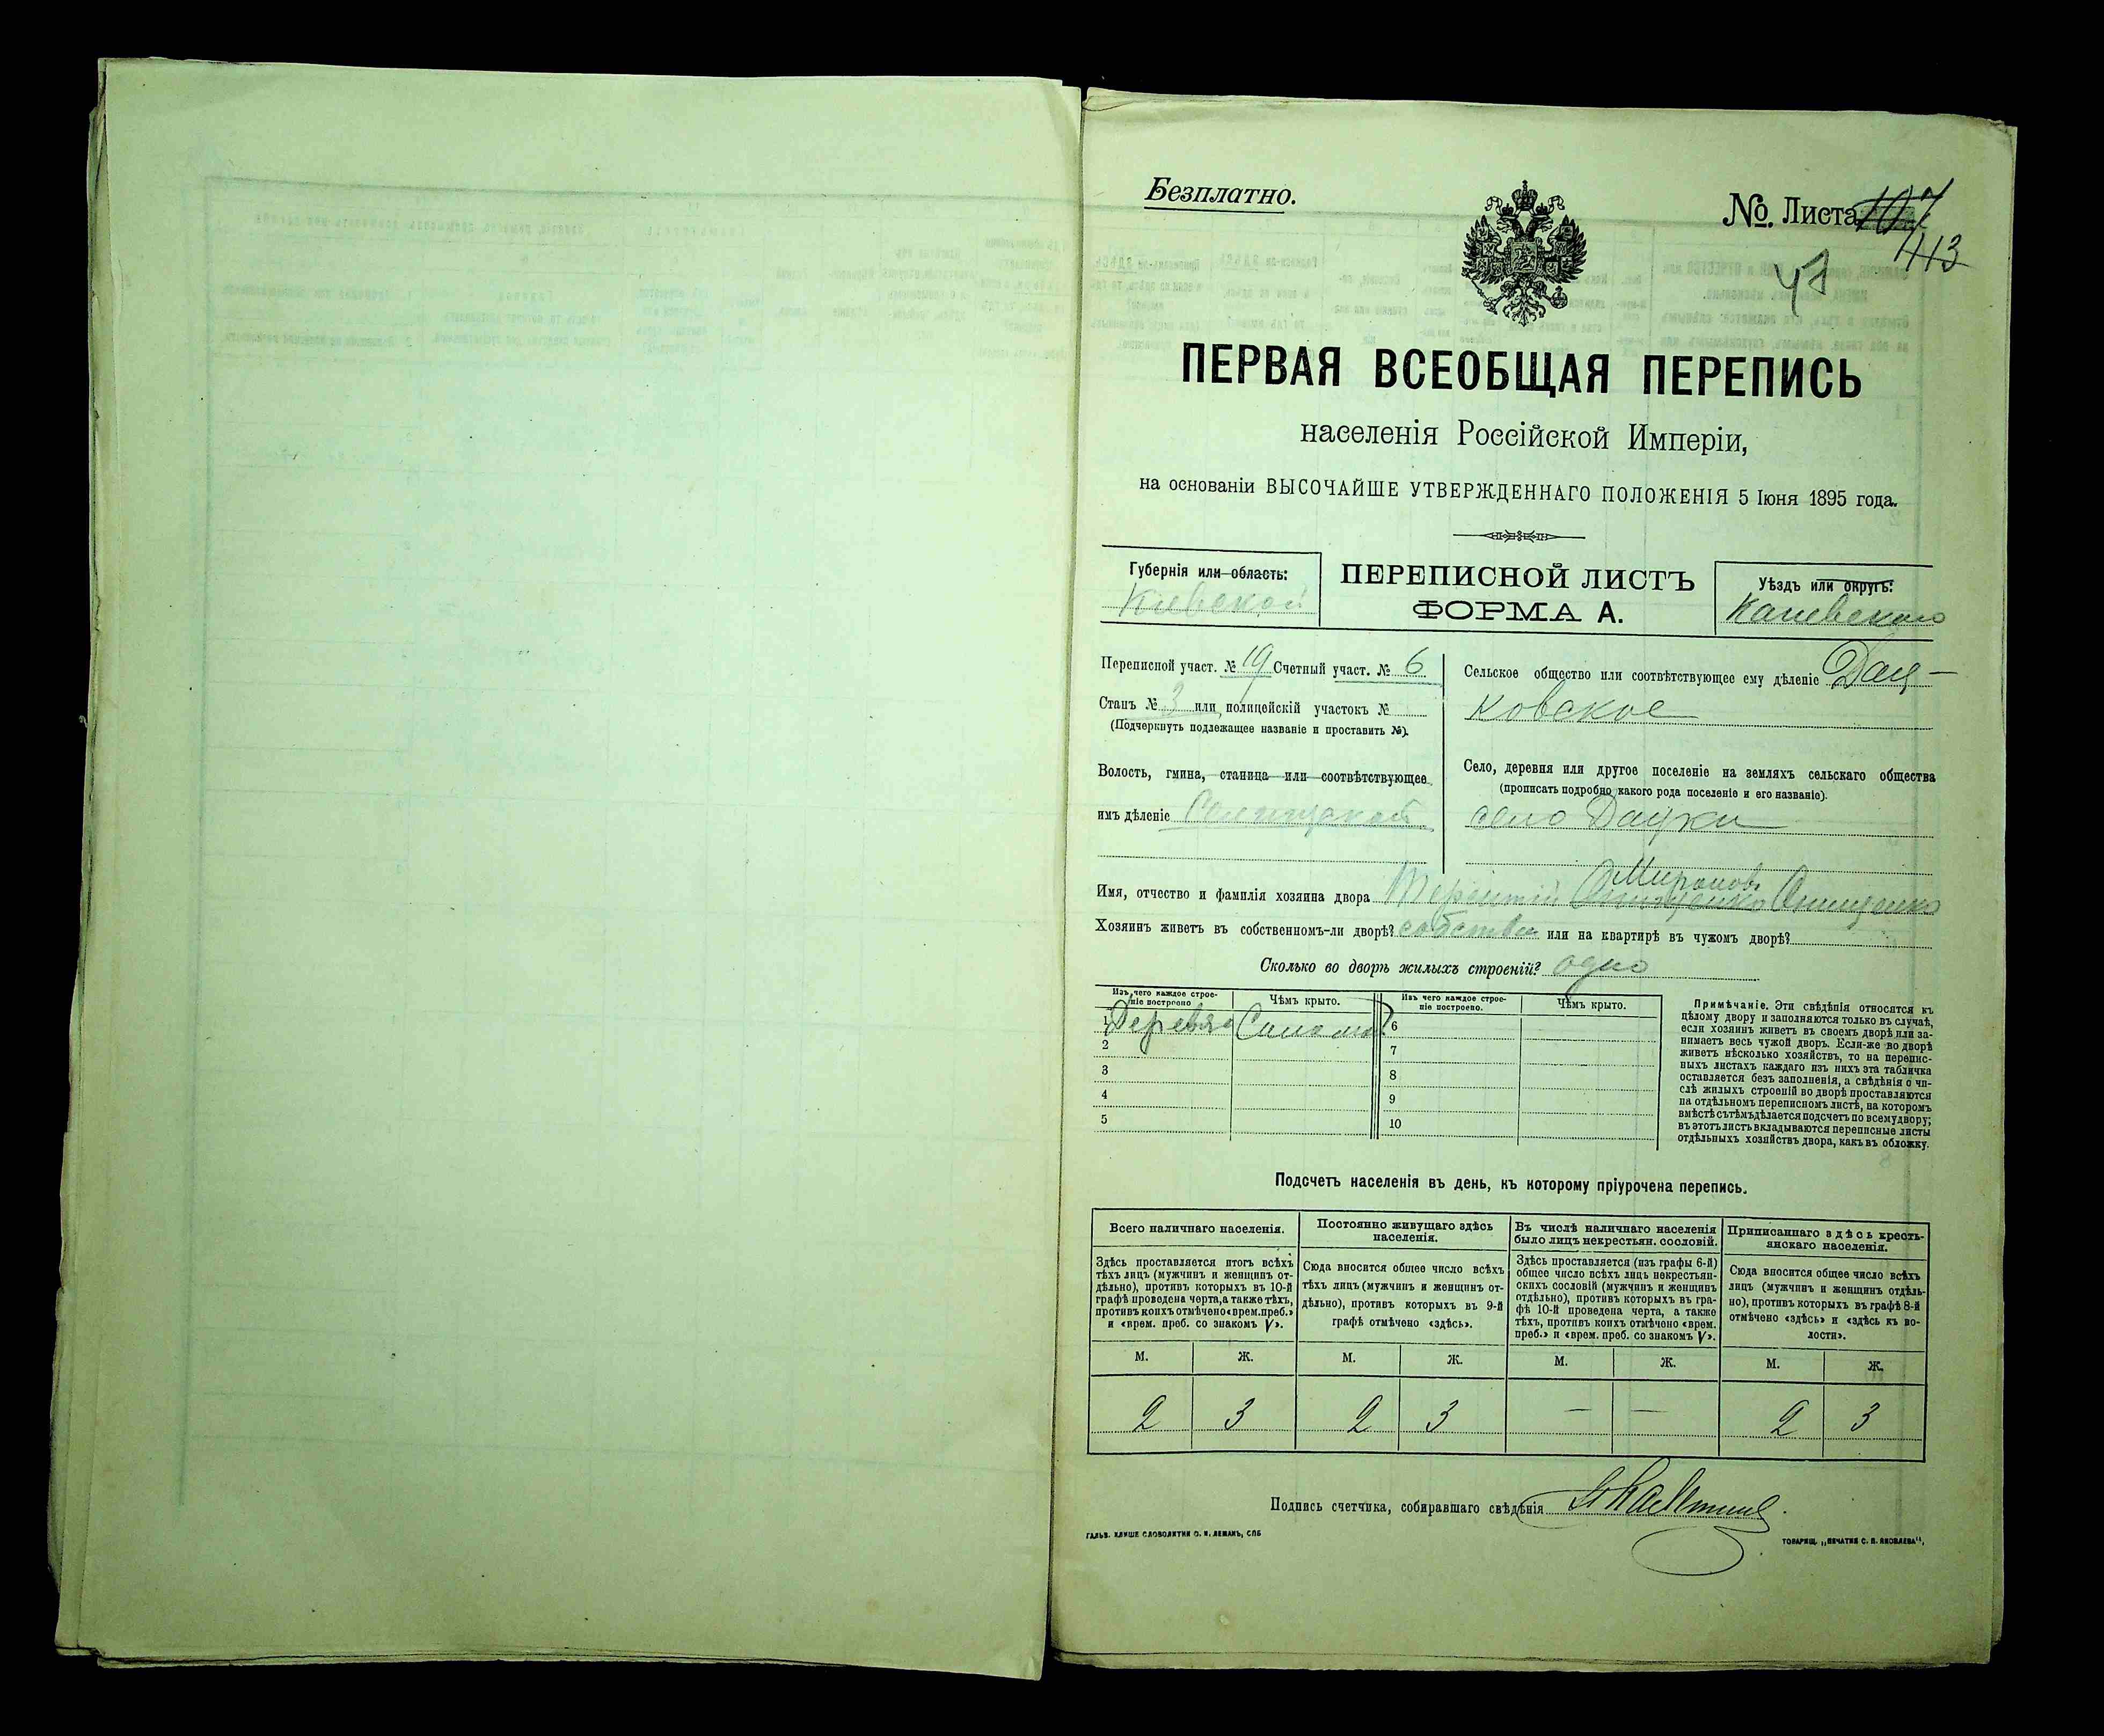 Безплатно.
№ Листа 107
113
47
ПЕРВАЯ ВСЕОБЩАЯ ПЕРЕПИСЬ
населенія Россійской Имперіи,
на основаніи ВЫСОЧАЙШЕ УТВЕРЖДЕННАГО ПОЛОЖЕНІЯ 5 Іюня 1895 года.
Губернія или область:
Киевской
ПЕРЕПИСНОЙ ЛИСТЪ
ФОРМА А.
Уѣздъ или округъ:
Каневского
Переписной участ. № 19 Счетный участ. № 6
Станъ № 3 или полицейскій участокъ №
(Подчеркнуть подлежащее названіе и проставить №).
Волость, гмина, станица или соотвѣтствующее
имъ дѣленіе Селищской
Сельское общество или соотвѣтствующее ему дѣленіе Дац-
ковское
Село, деревня или другое поселеніе на земляхъ сельскаго общества
(прописать подробно какого рода поселеніе и его названіе).
село Дацки
Миронов
Имя, отчество и фамилія хозяина двора Терентий Онищенко Онищенко
Хозяинъ живетъ въ собственномъ-ли дворѣ? собствен или на квартирѣ въ чужомъ дворѣ?
Сколько во дворѣ жилыхъ строеній? одно
Изъ чего каждое строе-
ніе построено
Чѣмъ крыто.
Изъ чего каждое строе-
ніе построено.
Чѣмъ крыто.
1 Деревян Солома 6
2 7
3 8
4 9
5 10
Примѣчаніе. Эти свѣдѣнія относятся къ
цѣлому двору и заполняются только въ случаѣ,
если хозяинъ живетъ въ своемъ дворѣ или за-
нимаетъ весь чужой дворъ. Если-же во дворѣ
живетъ нѣсколько хозяйствъ, то на перепис-
ныхъ листахъ каждаго изъ нихъ эта табличка
оставляется безъ заполненія, а свѣдѣнія о чи-
слѣ жилыхъ строеній во дворѣ проставляются
на отдѣльномъ переписномъ листѣ, на которомъ
вмѣстѣ съ тѣмъ дѣлается подсчетъ по всему двору;
въ этотъ листъ вкладываются переписные листы
отдѣльныхъ хозяйствъ двора, какъ въ обложку.
Подсчетъ населенія въ день, къ которому пріурочена перепись.
Всего наличнаго населенія.
Постоянно живущаго здѣсь
населенія.
Въ числѣ наличнаго населенія
было лицъ некрестьян. сословій.
Приписаннаго здѣсь кресть-
янскаго населенія.
Здѣсь проставляется итогъ всѣхъ
тѣхъ лицъ (мужчинъ и женщинъ от-
дѣльно), противъ которыхъ въ 10-й
графѣ проведена черта, а также тѣхъ,
противъ коихъ отмѣчено «врем. преб.»
и «врем. преб. со знакомъ V».
Сюда вносится общее число всѣхъ
тѣхъ лицъ (мужчинъ и женщинъ от-
дѣльно), противъ которыхъ въ 9-й
графѣ отмѣчено «здѣсь».
Здѣсь проставляется (изъ графы 6-й)
общее число всѣхъ лицъ некрестьян-
скихъ сословій (мужчинъ и женщинъ
отдѣльно), противъ которыхъ въ гра-
фѣ 10-й проведена черта, а также
тѣхъ, противъ коихъ отмѣчено «врем.
преб.» и «врем. преб. со знакомъ V».
Сюда вносится общее число всѣхъ
лицъ (мужчинъ и женщинъ отдѣль-
но), противъ которыхъ въ графѣ 8-й
отмѣчено «здѣсь» и «здѣсь къ во-
лости».
М. Ж. М. Ж. М. Ж. М. Ж.
2 3 2 3 — — 2 3
Подпись счетчика, собиравшаго свѣдѣнія
ГАЛЬВ. КЛИШЕ СЛОВОЛИТНИ О. И. ЛЕМАНЪ, СПБ
ТОВАРИЩ. „ПЕЧАТНЯ С. П. ЯКОВЛЕВА“,